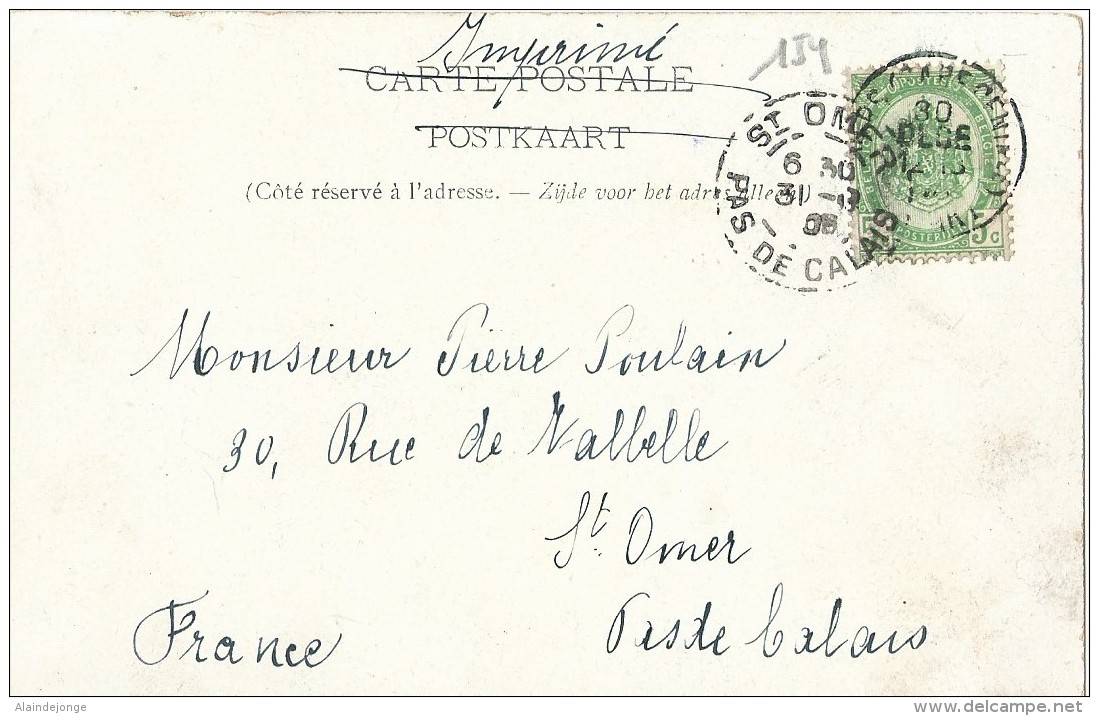 Imprimé
154
CARTE POSTALE
POSTKAART
(Côté réservé à l'adresse. — Zijde voor het adres alleen)
POSTES BELGIQUE
5c
30
ST OMER
6 30
31
PAS DE CALAIS
Monsieur Pierre Poulain
30, Rue de Valbelle
St. Omer
France
Pas de Calais
Alaindejonge
www.delcampe.net